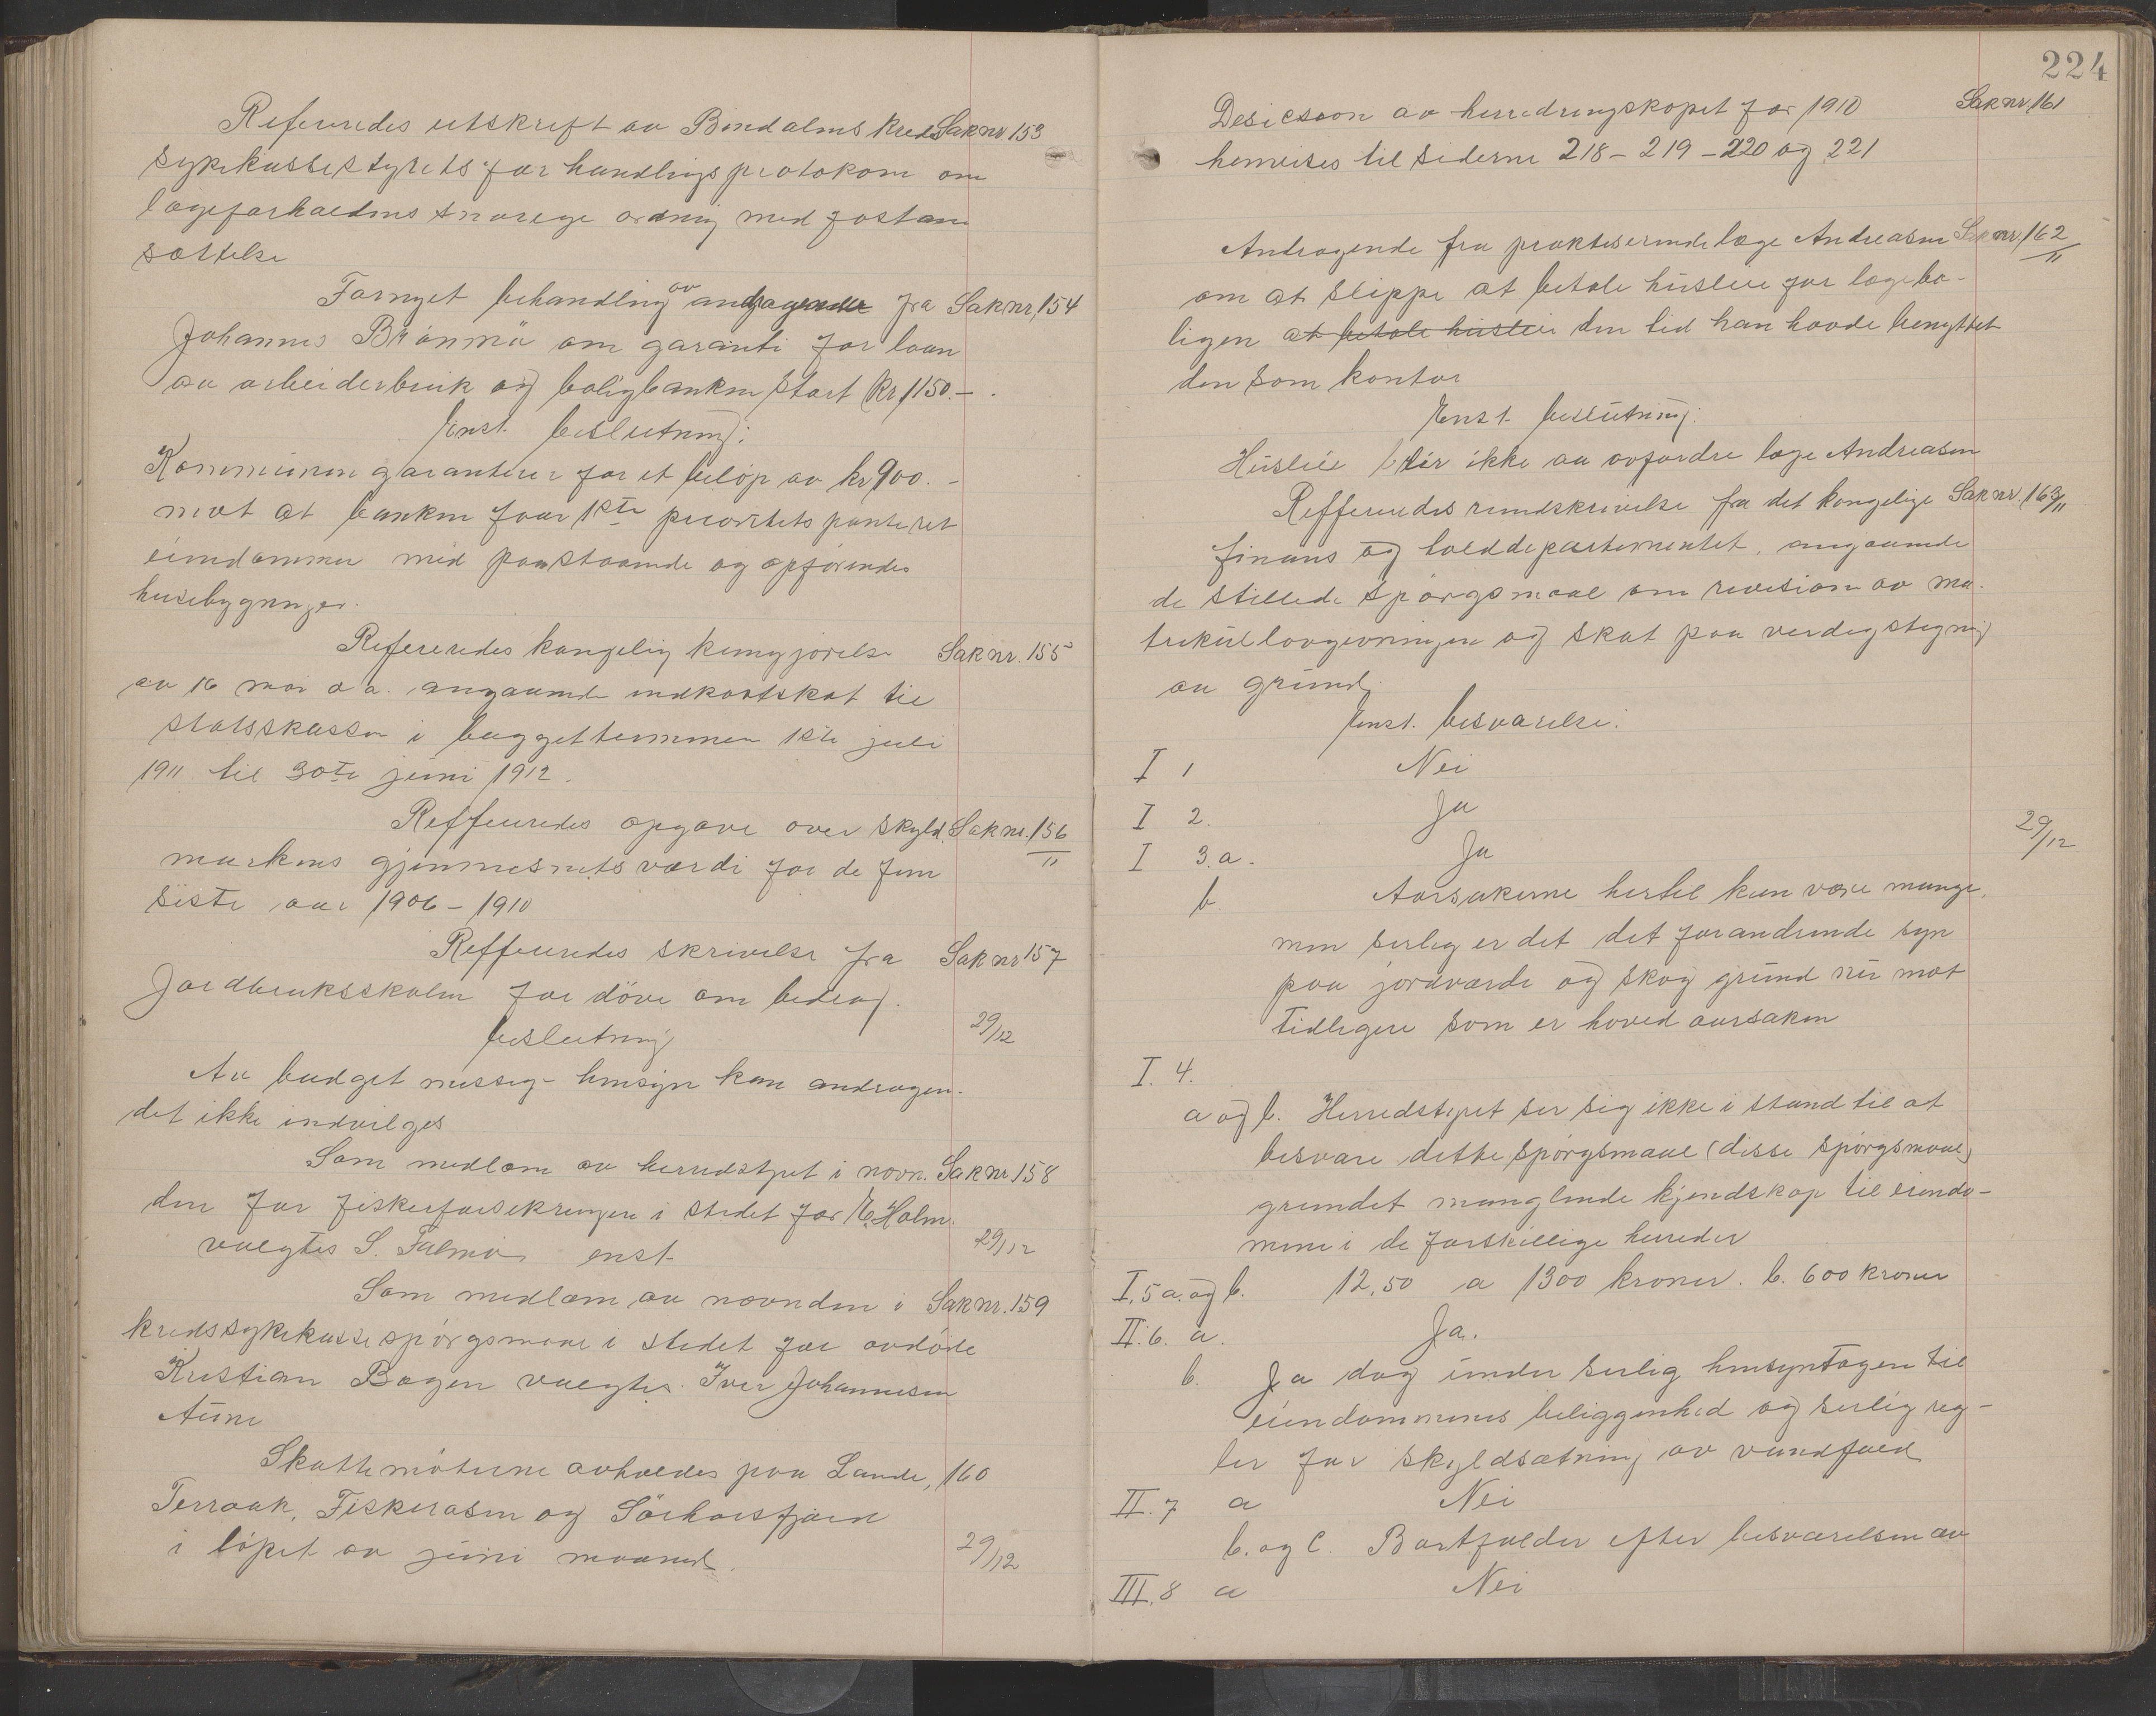 Refereredes utskrift av Bindalens Kreds Sak nr. 153
sykekassestyrets forhandlingsprotokom om
lægeforholdens snarege ordning med fastan
sættelse
Fornyet behandling av andragende fra Sak nr. 154
Johannes Brönmo om garanti for laan
av arbeiderbruk og boligbanken stort kr 1150.-.
Enst. beslutning:
Kommunen garanterer for et beløp av kr 900.-
mot at banken faar 1ste prioritets panteret
eiendommen med paastaaende og opførendes
husebygninger.
Refereredes kongelig kungjørelse Sak nr. 155
av 16 mai d a. angaaende indkomtskat til
statsskassen i buggetterminen 1ste juli
1911 til 30te juni 1912.
Reffereredes opgave over skyld. Sak nr. 156/11
markens gjennemsnits værdi for de fem
siste aar 1906 - 1910
Reffereredes skrivelse fra Sak nr 157
Jordbruksskolen for döve om bidrag.
beslutning 29/12
Av budget messig hensyn kan andragen-
det ikke indvilges
Som medlem av herredstyret i nevn. Sak nr 158
den for fiskerforsikringen i stedet for E. Holm.
valgtes S. Falmo enst 29/12
Som medlem av nevnden i Sak nr. 159
kredssykekasse spörgsmaal i stedet for avdøde
Kristian Bogen valgtes Iver Johannesen
Aune
Skattemöterne avholdes paa Lande, 160
Terraak, Fiskerosen og Sörhorsfjord
i löpet av juni maaned. 29/12
224
Desicsion av herredregnskapet for 1910 Sak nr 161
henvises til siderne 218 - 219 - 220 og 221
Andragende fra praktiserende læge Andreasen Sak nr. 162/11
om at slippe at betale husleie for lægebo-
ligen at betale husleie den tid han havde benyttet
den som kontor
Enst. beslutning:
Husleie blir ikke av avfordre læge Andreasen
Reffereredes rundskrivelse fra det kongelige Sak nr. 163/11
finans og tolddepartementet, angaaende
de stillede spørgsmaal om revision av ma-
trikullovgivningen og skat paa verdigstegning
av grund.
Enst. besvarelse:
I 1 Nei
I 2. Ja
I 3. a. Ja 29/12
b. Aarsakerne hertil kan være mange,
men serlig er det det forandrende syn
paa jordværde og skog grund nu mot
tidligere som er hoved aarsaken
I. 4.
a og b. Herredstyret ser sig ikke i stand til at
besvare dette spørgsmaal (disse spørgsmaal)
grundet manglende kjendskap til eiendo-
mene i de forskjellige herreder
I. 5 a. og b. 12,50 a 1300 kroner. b. 600 kroner
II. 6. a. Ja.
b. Ja dog under serlig hensyntagen til
eiendommenes beliggenhed og serlig reg-
ler for skyldsætning av vandfald
II. 7 a Nei
b. og c. Bortfalder efter besvarelsen av
III. 8 a Nei